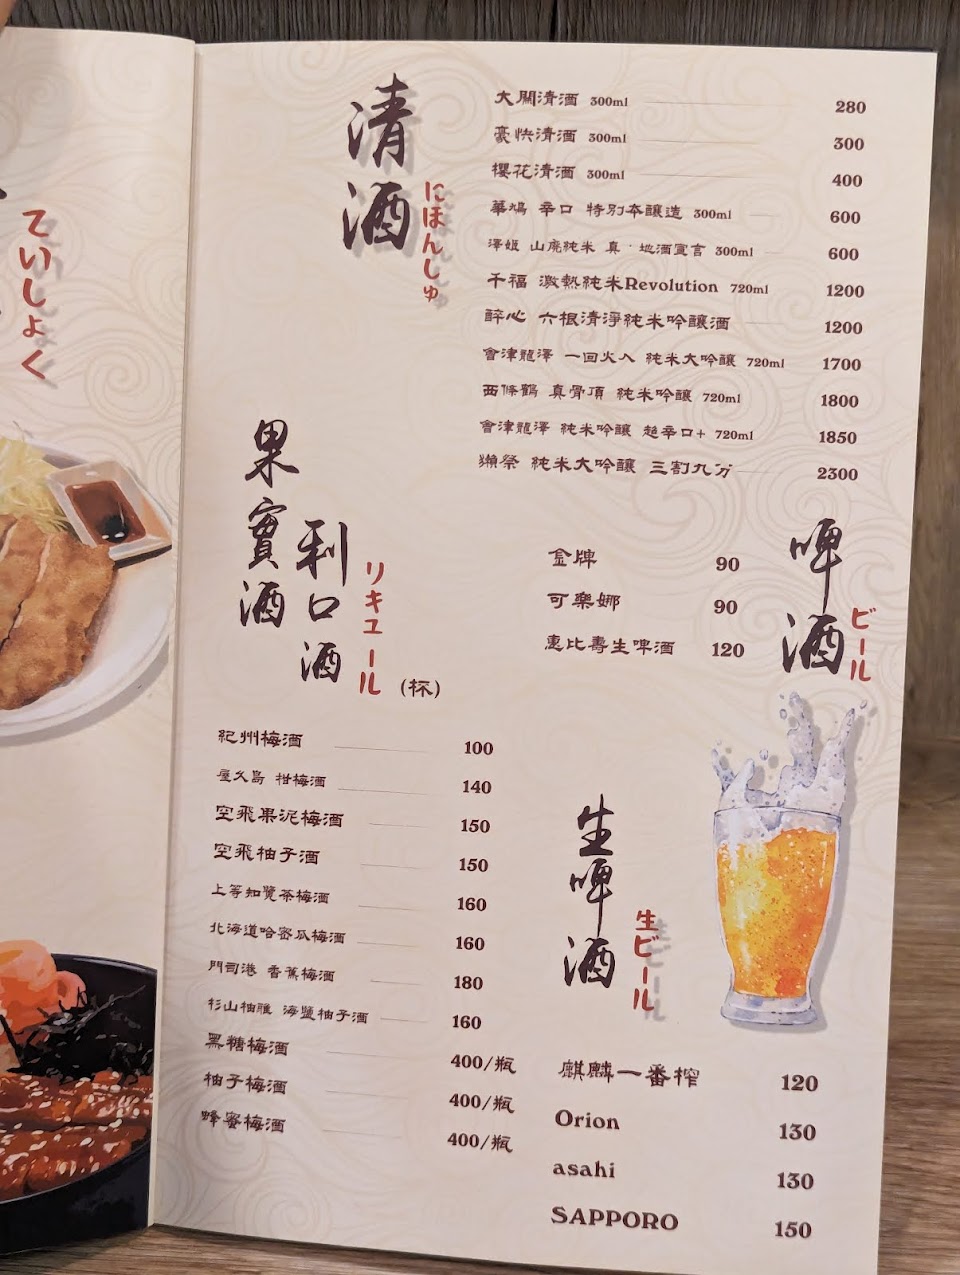 ていしょく
清酒
にほんしゅ
大關清酒 300ml 280
豪快清酒 300ml 300
櫻花清酒 300ml 400
華鳩 辛口 特別本醸造 300ml 600
澤姬 山廃純米 真・地酒宣言 300ml 600
千福 激熱純米Revolution 720ml 1200
醉心 六根清淨純米吟釀酒 1200
會津龍澤 一回火入 純米大吟釀 720ml 1700
西條鶴 真骨頂 純米吟釀 720ml 1800
會津龍澤 純米吟釀 超辛口+ 720ml 1850
獺祭 純米大吟釀 三割九分 2300
果實酒
利口酒
リキュール
(杯)
紀州梅酒 100
屋久島 柑梅酒 140
空飛果泥梅酒 150
空飛柚子酒 150
上等知覽茶梅酒 160
北海道哈密瓜梅酒 160
門司港 香蕉梅酒 180
杉山柚雅 海鹽柚子酒 160
黑糖梅酒 400/瓶
柚子梅酒 400/瓶
蜂蜜梅酒 400/瓶
啤酒
ビール
金牌 90
可樂娜 90
惠比壽生啤酒 120
生啤酒
生ビール
麒麟一番榨 120
Orion 130
asahi 130
SAPPORO 150